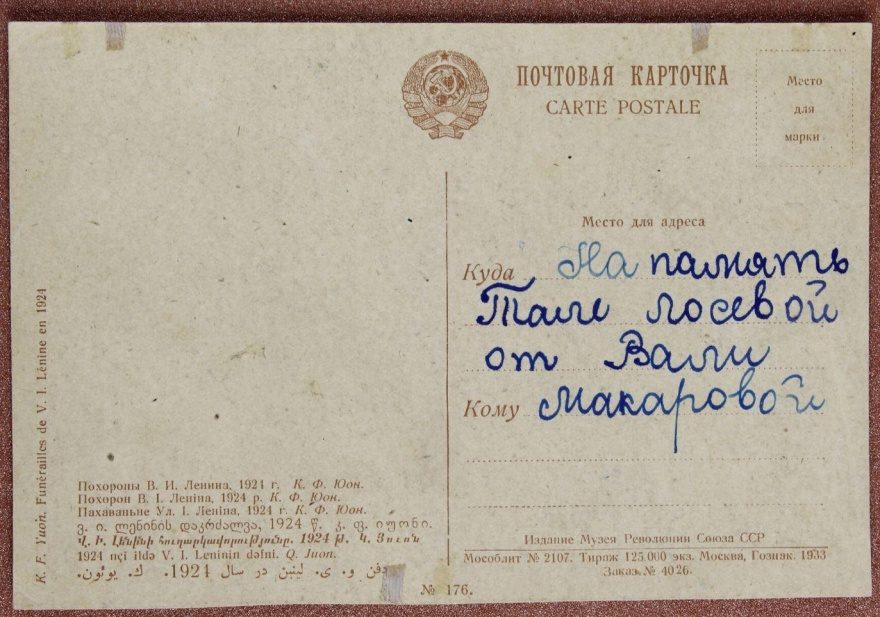 ПОЧТОВАЯ КАРТОЧКА
CARTE POSTALE
Место
для
марки
Место для адреса
Куда На память
Тале лосевой
от Вали
Кому Макаровой
K. F. Yuon. Funérailles de V. I. Lénine en 1924
Похороны В. И. Ленина, 1924 г. К. Ф. Юон.
Похорон В. І. Леніна, 1924 р. К. Ф. Юон.
Пахаваньне Ул. І. Леніна, 1924 г. К. Ф. Юон.
ვ. ი. ლენინის დაკრძალვა, 1924 წ. კ. ფ. იუონი.
Վ. Ի. Լենինի հուղարկավորությունը. 1924 թ. Կ. Յուոն
1924 nçi ildə V. I. Leninin dəfni. Q. Juon.
دفن و. ی. لینین در سال 1924. ك. یوئون.
Издание Музея Революции Союза ССР
Мособлит № 2107. Тираж 125.000 экз. Москва, Гознак. 1933
Заказ № 4026.
№ 176.